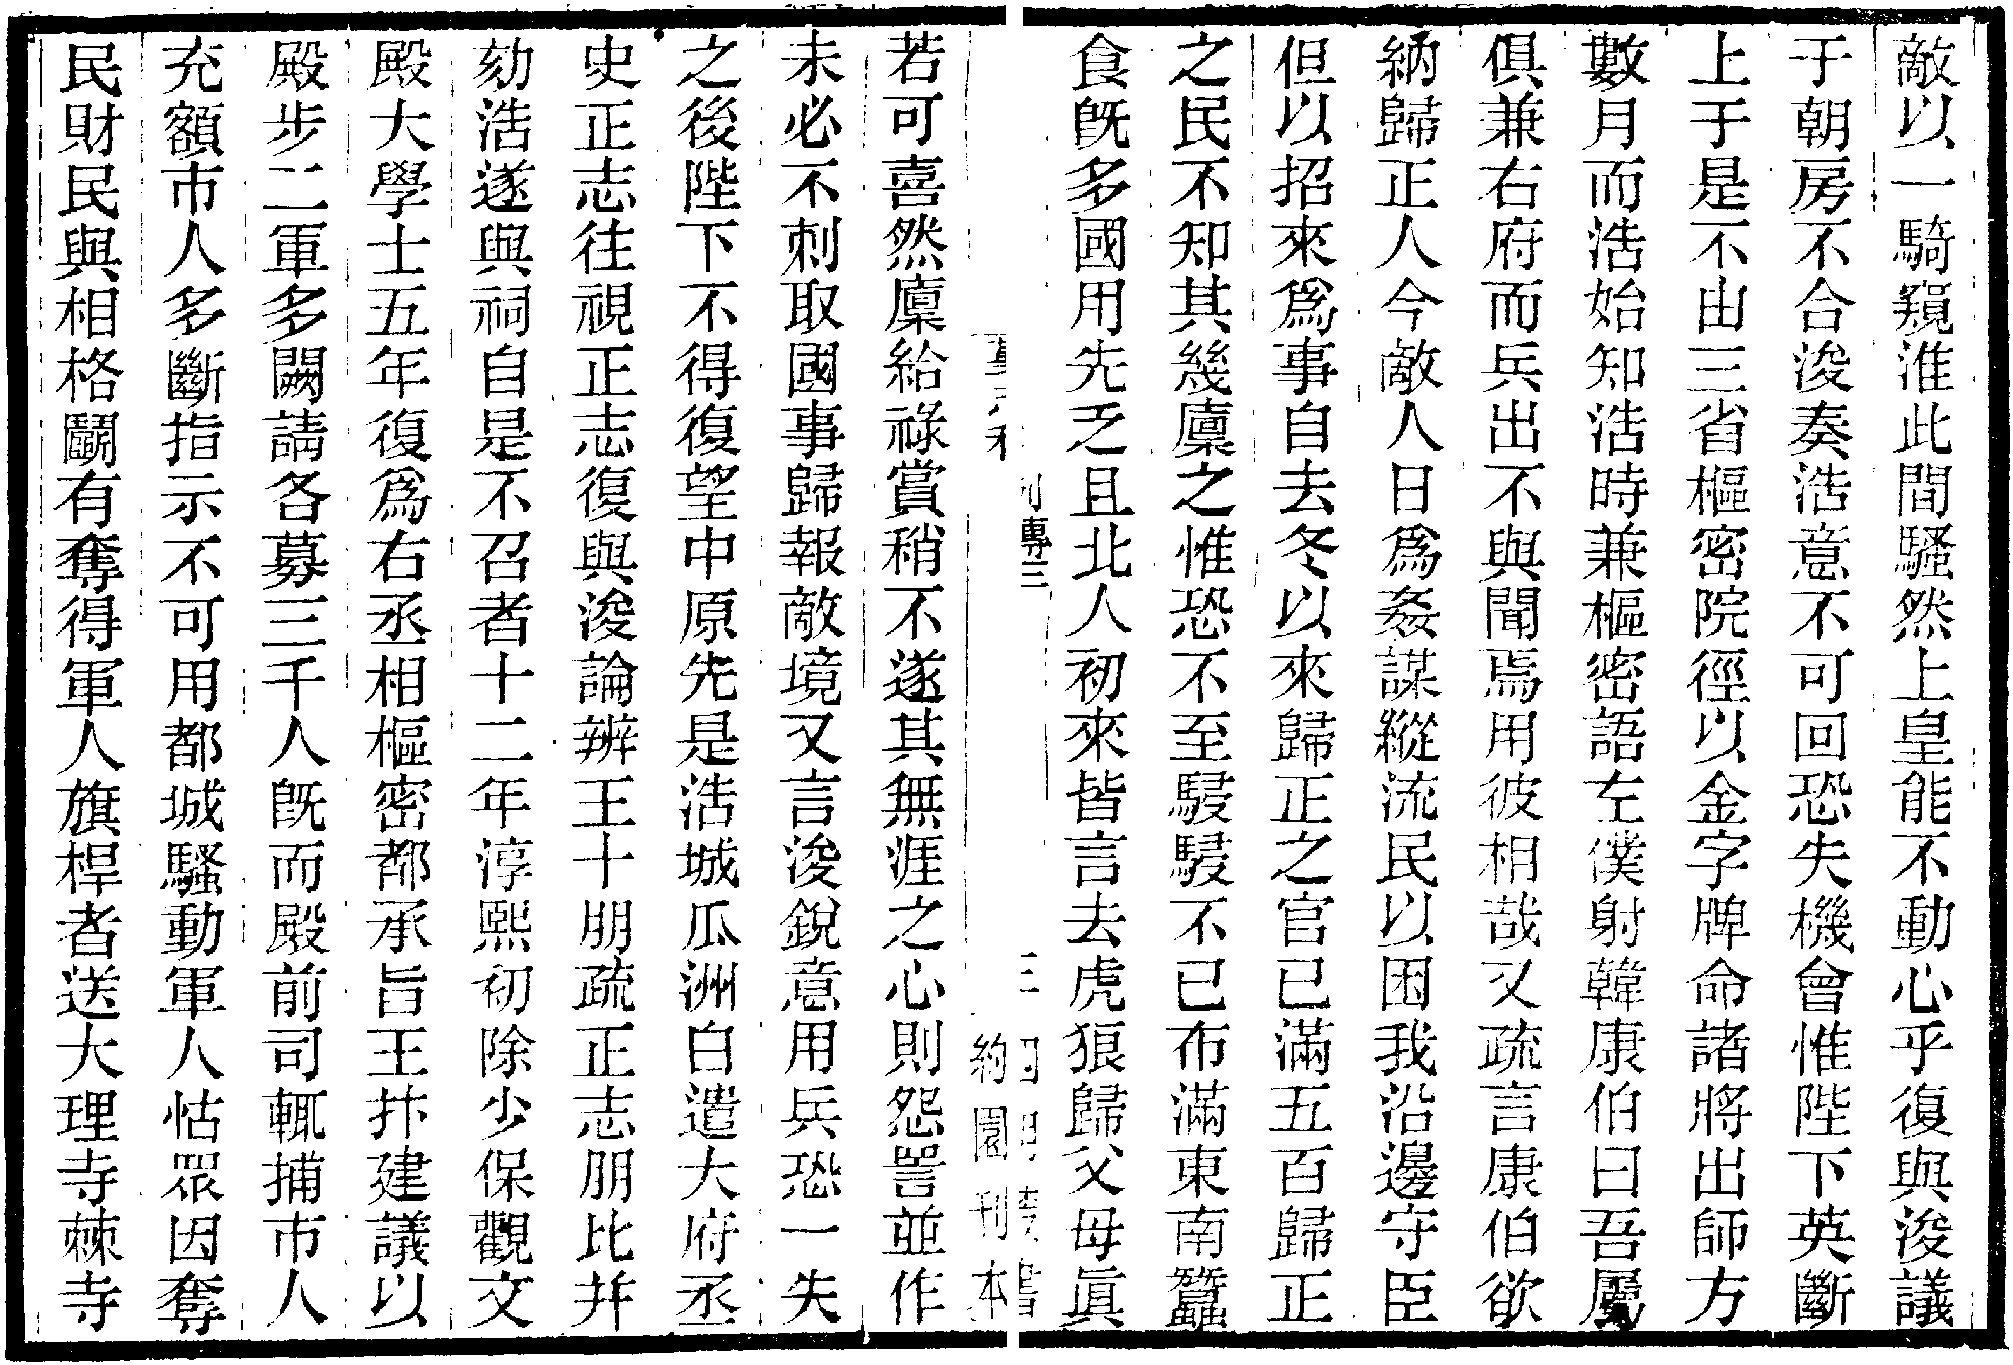 敵以一騎窺淮此間騷然上皇能不動心乎復與浚議
于朝房不合浚奏浩意不可回恐失機會惟陛下英斷
上于是不由三省樞密院徑以金字牌命諸將出師方
數月而浩始知浩時兼樞密語左僕射韓康伯曰吾屬
俱兼右府而兵出不與聞焉用彼相哉又疏言康伯欲
納歸正人今敵人日爲姦謀縱流民以困我沿邊守臣
但以招來爲事自去冬以來歸正之官已滿五百歸正
之民不知其幾廩之惟恐不至駸駸不已布滿東南蠶
食旣多國用先乏且北人初來皆言去虎狼歸父母眞
列專三
三
四明叢書
約園刊本
若可喜然廩給祿賞稍不遂其無涯之心則怨詈並作
未必不刺取國事歸報敵境又言浚銳意用兵恐一失
之後陛下不得復望中原先是浩城瓜洲白遣大府丞
史正志往視正志復與浚論辨王十朋疏正志朋比并
劾浩遂與祠自是不召者十二年淳熙初除少保觀文
殿大學士五年復爲右丞相樞密都承旨王抃建議以
殿步二軍多闕請各募三千人旣而殿前司輒捕市人
充額市人多斷指示不可用都城騷動軍人怙眾因奪
民財民與相格鬭有奪得軍人旗桿者送大理寺棘寺